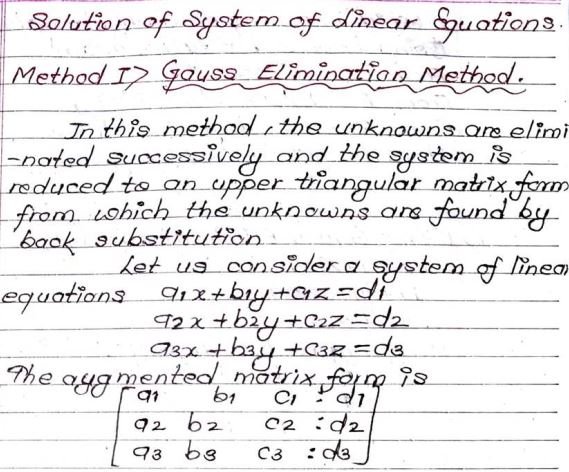 Solution of System of Linear Equations.
Method I> Gauss Elimination Method.
In this method, the unknowns are elimi
-nated successively and the system is
reduced to an upper triangular matrix form
from which the unknowns are found by
back substitution.
Let us consider a system of linear
equations a1x+b1y+c1z=d1
a2x+b2y+c2z=d2
a3x+b3y+c3z=d3
The augmented matrix form is
[a1 b1 c1 : d1]
[a2 b2 c2 : d2]
[a3 b3 c3 : d3]